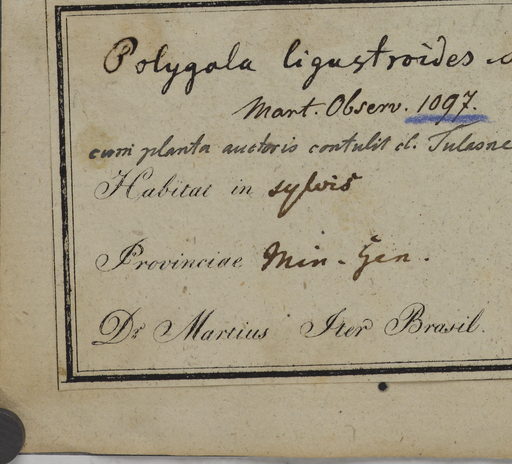 Polygala ligustroides
Mart. Observ. 1097.
cum planta auctoris contulit cl. Tulasne
Habitat in sylvis
Provinciae Min. Gen.
Dr. Martius Iter Brasil.